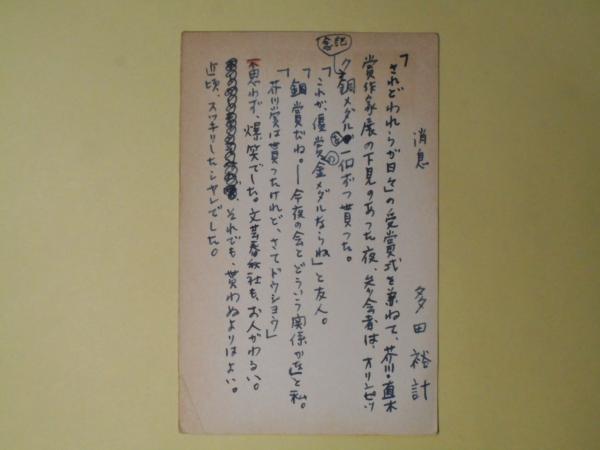 消息
多田裕計
「されどわれらが日々」の受賞式を兼ねて、芥川・直木
賞作家展の下見のあった夜、参会者は、オリンピッ
ク記念銅メダルを一個ずつ貰った。
「これが、優賞の金メダルならね」と友人。
「銅賞だね。―今夜の会とどういう関係かな」と私。
「芥川賞は貰ったけれど、さてドウショウ」
思わず、爆笑でした。文芸春秋社も、お人がわるい。
それでも、貰わぬよりはよい。
近頃、スッキリしたシャレでした。